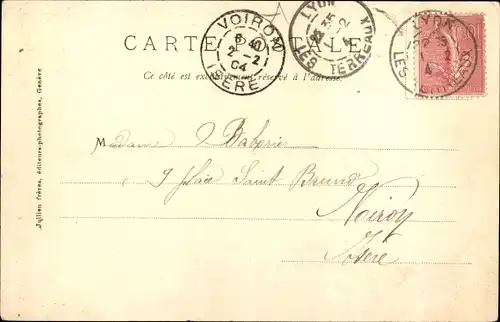 VOIRON
8 40
2-2
04
ISÈRE
LYON
35
2-2
LES TERREAUX
LYON
LES TERREAUX
CARTE POSTALE
Ce côté est exclusivement réservé à l'adresse.
Jullien frères, éditeurs-photographes, Genève
Madame
9 place Saint Bruno
Voiron
Isère